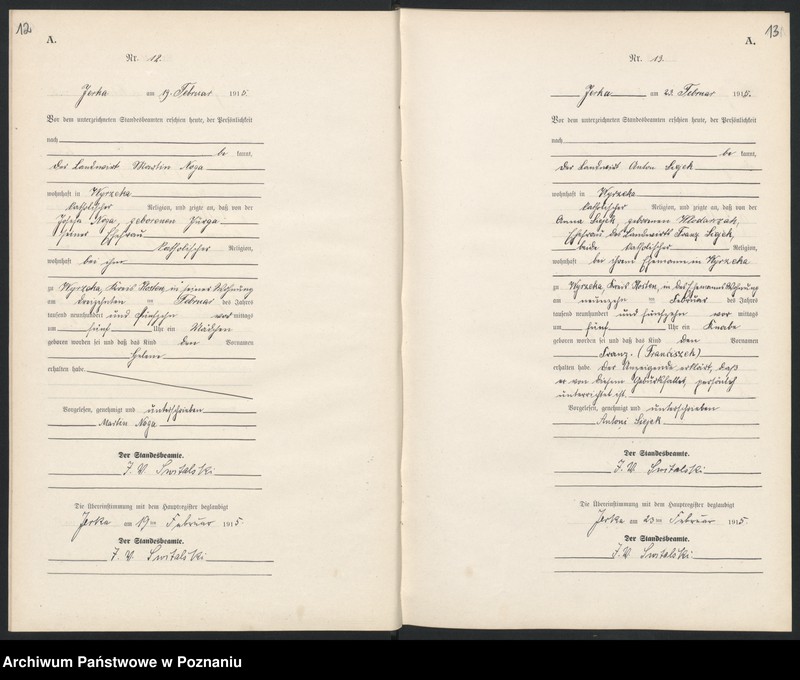 12
A.
Nr. 12.
Jerka am 19. Februar 1915.
Vor dem unterzeichneten Standesbeamten erschien heute, der Persönlichkeit
nach
be kannt,
der Landwirt Martin Noga
wohnhaft in Wyrzeka
katholischer Religion, und zeigte an, daß von der
Josefa Noga, geborenen
seiner Ehefrau
katholischer Religion,
wohnhaft bei ihm
zu Wyrzeka, Kreis Kosten, in seiner Wohnung
am dreizehnten ten Februar des Jahres
tausend neunhundert und fünfzehn vor mittags
um fünf Uhr ein Mädchen
geboren worden sei und daß das Kind den Vornamen
Helene
erhalten habe.
Vorgelesen, genehmigt und unterschrieben
Martin Noga
Der Standesbeamte.
J. V. Switalski
Die Übereinstimmung mit dem Hauptregister beglaubigt
Jerka am 19ten Februar 1915
Der Standesbeamte.
J. V. Switalski
13
A.
Nr. 13.
Jerka am 23. Februar 1915.
Vor dem unterzeichneten Standesbeamten erschien heute, der Persönlichkeit
nach
be kannt,
der Landwirt Anton
wohnhaft in Wyrzeka
katholischer Religion, und zeigte an, daß von der
Anna geborenen
Ehefrau des Landwirts Franz
beide katholischer Religion,
wohnhaft bei ihrem Ehemann in Wyrzeka
zu Wyrzeka, Kreis Kosten, in des Ehemannes Wohnung
am neunzehn ten Februar des Jahres
tausend neunhundert und fünfzehn vor mittags
um fünf Uhr ein Knabe
geboren worden sei und daß das Kind den Vornamen
Franz. (Franciszek)
erhalten habe. Der Anzeigende erklärt, daß
er von diesem Geburtsfalle persönlich
unterrichtet ist.
Vorgelesen, genehmigt und unterschrieben
Antoni
Der Standesbeamte.
J. V. Switalski
Die Übereinstimmung mit dem Hauptregister beglaubigt
Jerka am 23ten Februar 1915
Der Standesbeamte.
J. V. Switalski
Archiwum Państwowe w Poznaniu